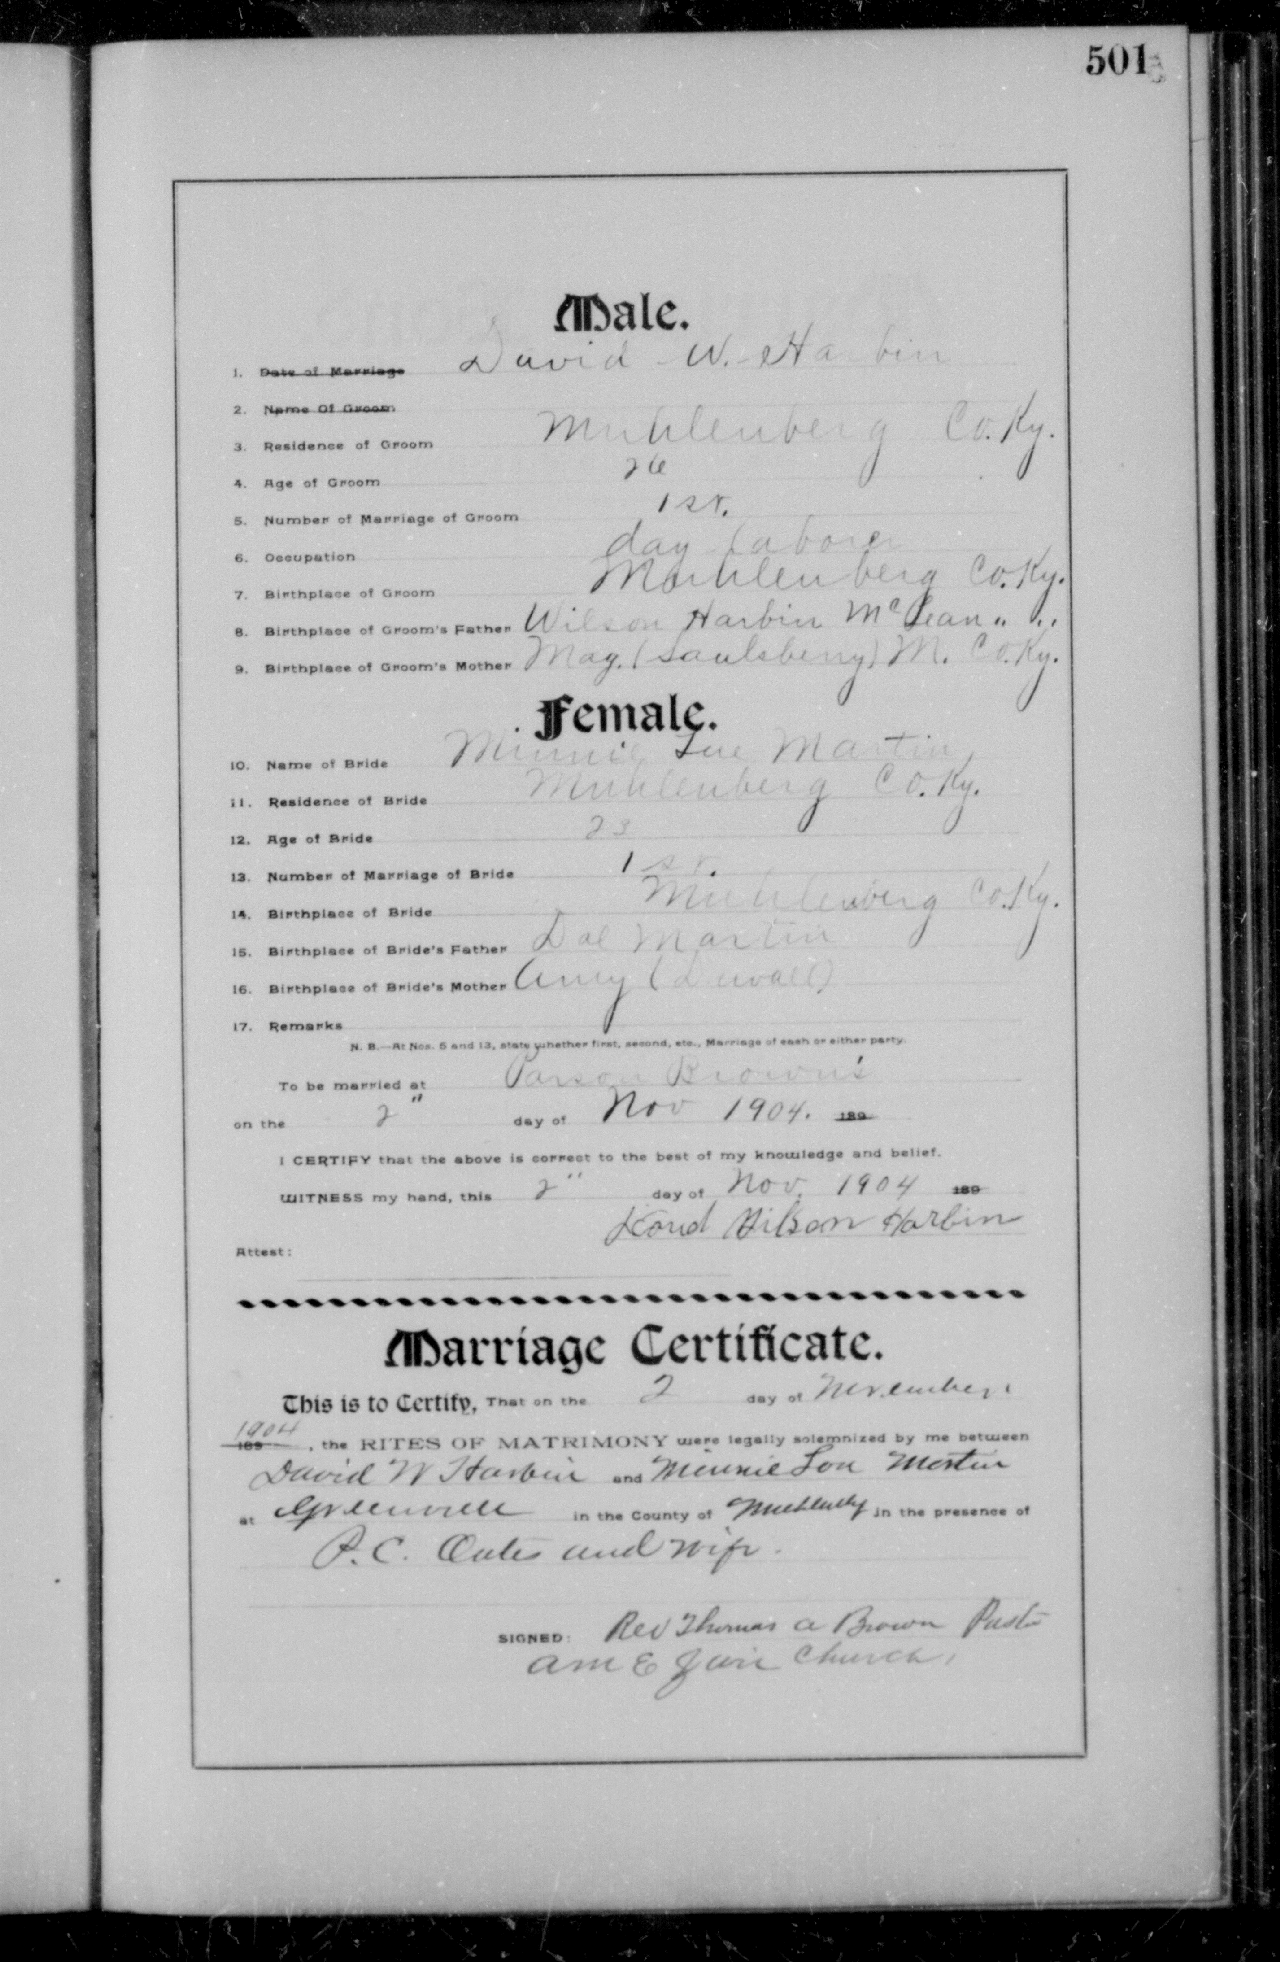 501
Male.
David W. Harbin
1. Date of Marriage
2. Name Of Groom
3. Residence of Groom Muhlenberg Co. Ky.
4. Age of Groom 26
5. Number of Marriage of Groom 1st.
6. Occupation day laborer
7. Birthplace of Groom Muhlenberg Co. Ky.
8. Birthplace of Groom's Father Wilson Harbin McLean " "
9. Birthplace of Groom's Mother Mag. (Saulsberry) M. Co. Ky.
Female.
10. Name of Bride Minnie Lue Martin
11. Residence of Bride Muhlenberg Co. Ky.
12. Age of Bride 23
13. Number of Marriage of Bride 1st.
14. Birthplace of Bride Muhlenberg Co. Ky.
15. Birthplace of Bride's Father Dal Martin
16. Birthplace of Bride's Mother Amy (Duvall)
17. Remarks
N. B.—At Nos. 5 and 13, state whether first, second, etc., Marriage of each or either party.
To be married at Parson Brown's
on the 2" day of Nov 1904. 189
I CERTIFY that the above is correct to the best of my knowledge and belief.
WITNESS my hand, this 2" day of Nov. 1904 189
Harbin
Attest:
Marriage Certificate.
This is to Certify, That on the 2 day of November,
1904 189 , the RITES OF MATRIMONY were legally solemnized by me between
David W Harbin and Minnie Lou Martin
at Greenville in the County of in the presence of
P. C. Oates and wife.
SIGNED: Rev Thomas A Brown
A M E Zion Church,